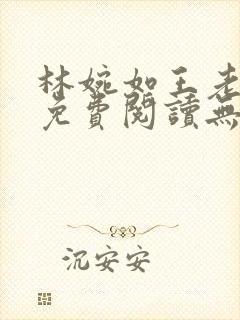 林婉如王老
免費閱讀無
沉安安